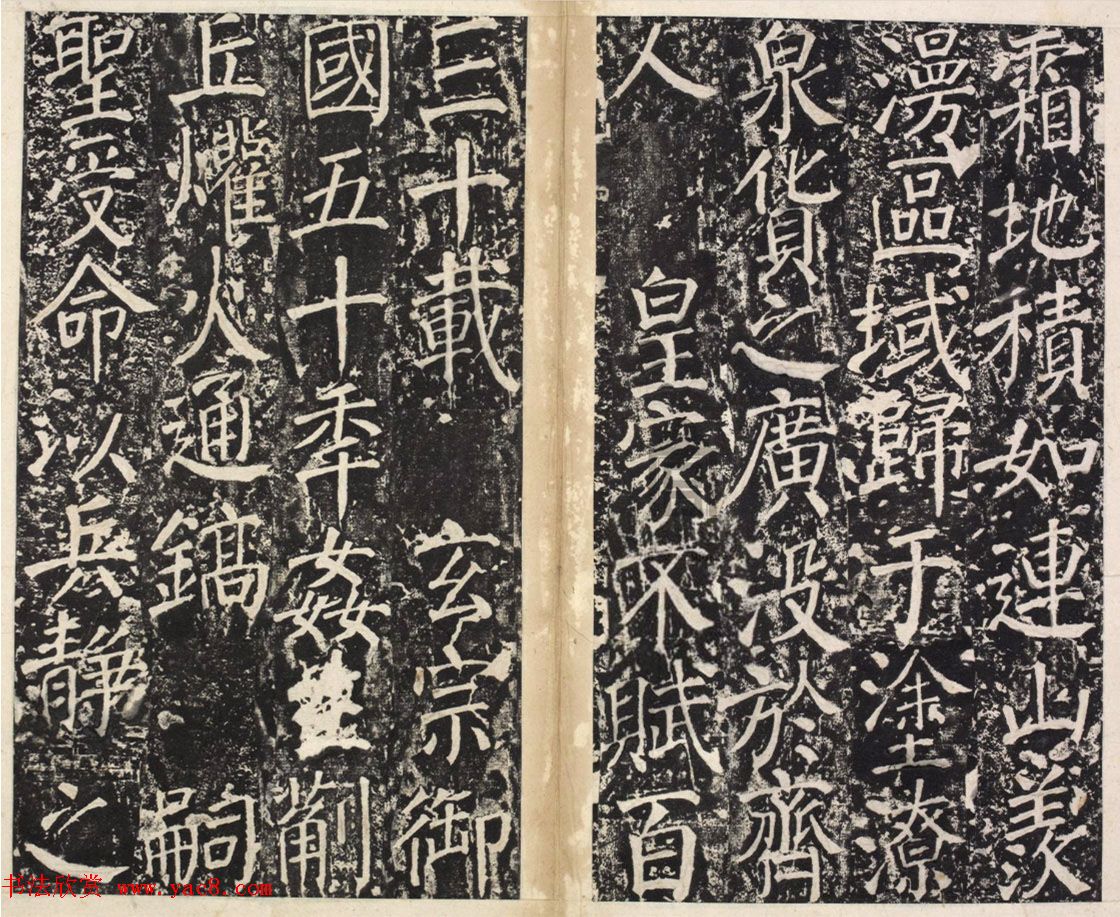 霜地積如連山羨
漫區域歸于塗潦
泉貨之廣沒於齊
人 皇家不賦百
三十載 玄宗御
國五十秊姦薊
丘爟火通鎬 嗣
聖受命以兵靜之
书法欣赏 www.yac8.com